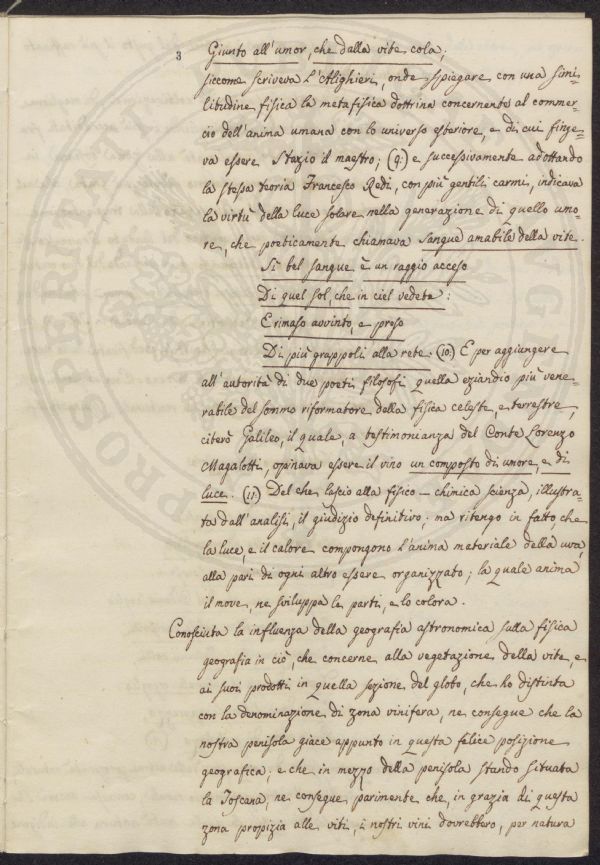 3
Giunto all'umor, che dalla vite cola;
siccome scriveva l'Alighieri, onde spiegare con una simi=
litudine fisica la metafisica dottrina concernente al commer=
cio dell'anima umana con lo universo esteriore, e di cui finge=
va essere Stazio il maestro; (9:) e successivamente adottando
la stessa teoria Francesco Redi, con più gentili carmi, indicava
la virtù della luce solare nella generazione di quello umo=
re, che poeticamente chiamava sangue amabile della vite.
Sì bel sangue è un raggio acceso
Di quel sol, che in ciel vedete:
E rimaso avvinto, e preso
Di più grappoli alla rete. (10:) E per aggiungere
all'autorità di due poeti filosofi quella eziandio più vene=
rabile del sommo riformatore della fisica celeste, e terrestre,
citerò Galileo, il quale, a testimonianza del Conte Lorenzo
Magalotti, opinava essere il vino un composto di umore, e di
luce. (11:) Del che lascio alla fisico-chimica scienza, illustra=
ta dall'analisi, il giudizio definitivo; ma ritengo in fatto, che
la luce, e il calore compongono l'anima materiale della uva,
alla pari di ogni altro essere organizzato; la quale anima
il move, ne sviluppa le parti, e lo colora.
Conosciuta la influenza della geografia astronomica sulla fisica
geografia in ciò, che concerne alla vegetazione della vite, e
ai suoi prodotti in quella sezione del globo, che ho distinta
con la denominazione di zona vinifera, ne consegue che la
nostra penisola giace appunto in questa felice posizione
geografica; e che in mezzo della penisola stando situata
la Toscana, ne consegue parimente che, in grazia di questa
zona propizia alle viti, i nostri vini dovrebbero, per natura